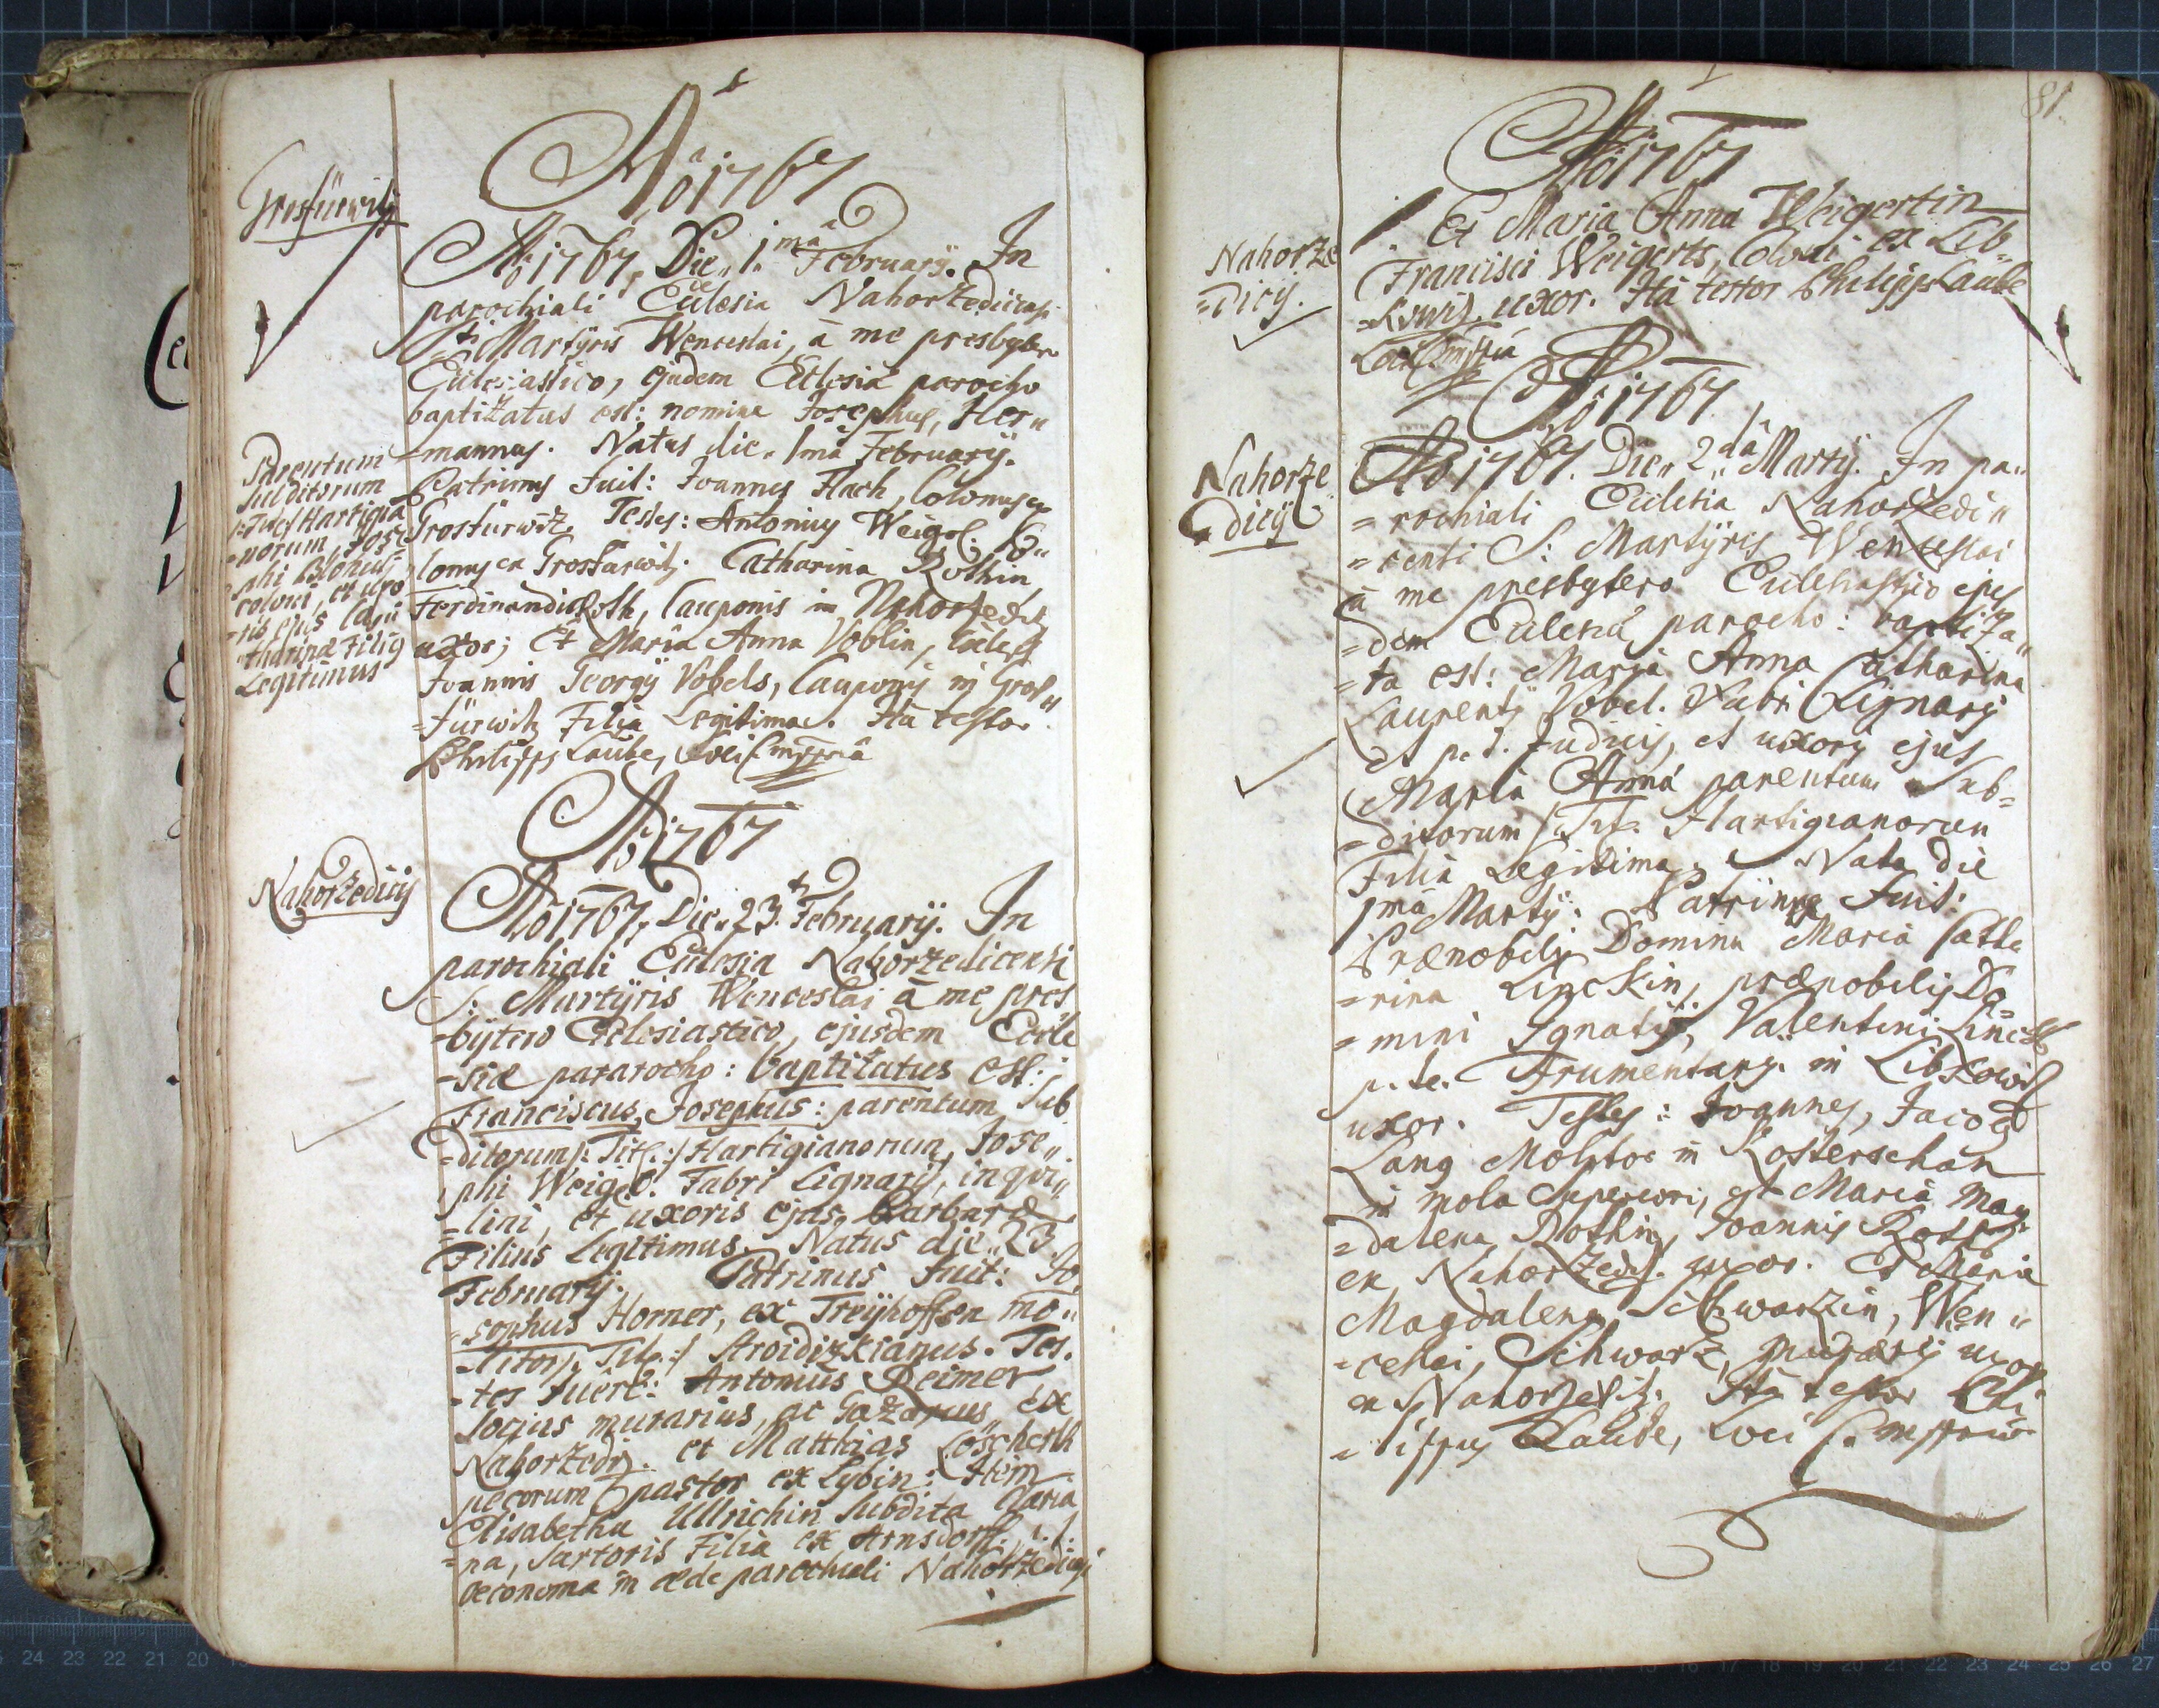 Aõ 1767
Grosfürwitz
Aõ 1767, Die 1.ma February. In
parochiali Ecclesia Nahorzedicensi
Sti Martÿris Wenceslai, à me presbytero
Ecclesiastico, ejusdem Ecclesiæ parocho
baptizatus est: nomine Josephus, Her„
=mannus. Natus die 1ma February.
Patrinus Fuit: Joannes Flach, Colonus ex
Grosfürwitz. Testes: Antonius Weigel. Co„
lonus ex Grosfürwitz. Catharina Rothin,
Ferdinandi Roth, Cauponis in Nahorzeditz
uxor; Et Maria Anna Voblin,
Joannis Georgÿ Vobels, Cauponis in Gros„
=fürwitz Filia Legitima. Ita testor
Philipps Laube, Loci C. mppria
Parentum
subditorum
/:Titl:/ Hartigia
=norum Jose
=phi
coloni, et uxo
=ris ejus Ca
tharinæ Filius
Legitimus
Aõ 1767
Nahorzedicij
Aõ 1767, Die 23. February. In
parochiali Ecclesia Nahorzedicensi
S: Martÿris Wenceslai à me pres
=bÿtero Ecclesiastico, ejusdem Eccle
=siæ pararocho: baptizatus est:
Franciscus, Josephus: parentum sub
=ditorum /: Titl:/ Hartigianorum, Jose„
phi Weigel. Fabri Lignarÿ, inqvi„
=lini, et uxoris ejus, Barbaræ
Filius Legitimus. Natus die 23.
February. Patrinus Fuit: Jo
=sephus Horner, ex Treÿhoffen mo„
=litor /: Titl:/ Stroidizkianus. Tes.
=tes Fuere: Antonius Reimer
socius murarius, ac ex
Nahorzeditz. et Matthias Löscherth
pecorum pastor ex Lybin: Item
Elisabetha Ullrichin subdita Claria
=na, Sartoris Filia ex Arnsdorff.
oeconoma in æde parochiali Nahorzedicij
81.
Aõ 1767
Nahorze
=dicij.
Et Maria Anna Weigertin
Francisci Weigerts, Coloni ex Lib„
=kowitz uxor. Ita testor Philipps Laube
Loci C. mppria
Aõ 1767
Nahorze
=dicij
Aõ 1767. Die 2.da Martÿ. In pa„
=rochiali Ecclesia Nahorzedi„
=censi S: Martÿris Wenceslai
à me presbytero Ecclesiastico ejus
=dem Ecclesiæ parocho: baptiza„
=ta est: Maria Anna Catharina
Laurentÿ Vobel. Fabri Lignarÿ
et p. t. Judicis, et uxoris ejus
Maria Anna parentum Sub=
=ditorum /: Tit. Hartigianorum
Filia Legitima. Nata die
1ma Martÿ. Patrinna Fuit:
Prænobilis Domina Maria Catha
=rina Linckin, prænobilis Do
=mini Ignatÿ, Valentini Linck
p. te. Frumentarÿ in Libkowitz
uxor. Testes: Joannes, Jacob
Lang Molitor in Kosterschan
in mola superiori, et Maria Mag
=dalena Rothin, Joannis Roth
ex Nahorzeditz. uxor. Et Maria
Magdalena Schwarzin, Wen„
=ceslai, Schwarz, murarÿ uxor
ex Nahorzeditz. Ita testor Phi
=lippus Laube, Loci C. mppria